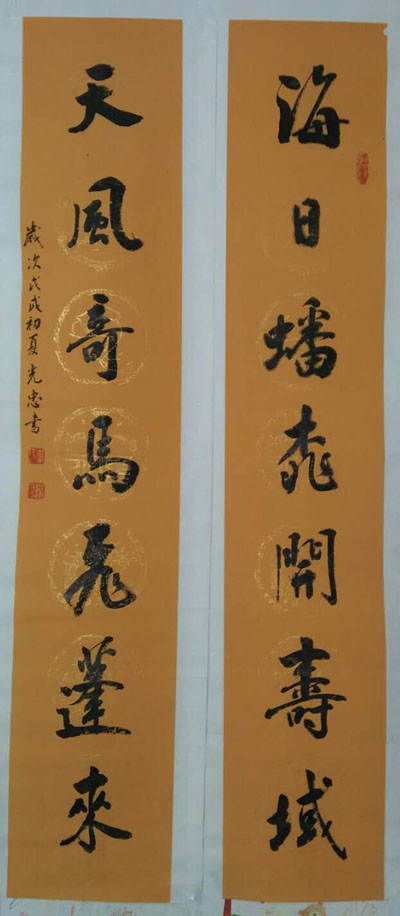 海日蟠桃開壽域
天風奇馬飛蓬來
歲次戊戌初夏光忠書